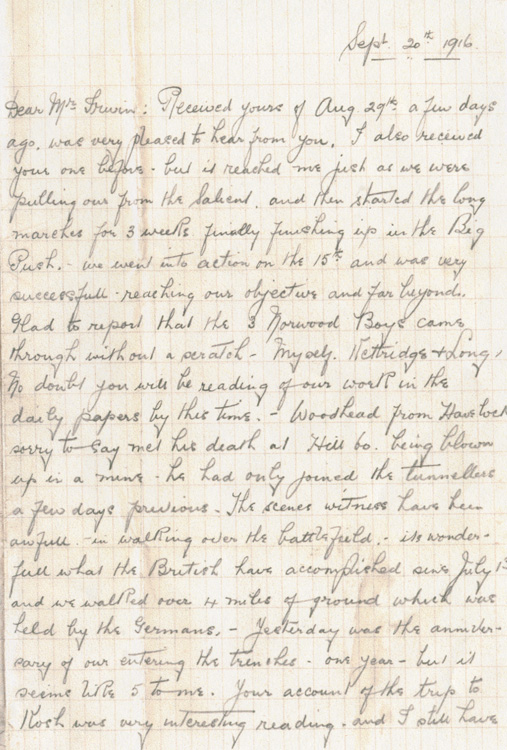 Sept. 20th 1916.
Dear Mrs Irwin: Received yours of Aug. 29th. a few days
ago. was very pleased to hear from you. I also received
your one before - but it reached me just as we were
pulling our from the Salient, and then started the long
marches for 3 weeks finally finishing up in the Big
Push. - we went into action on the 15th and was very
successfull - reaching our objective and far beyond.
Glad to report that the 3 Norwood Boys came
through without a scratch - Myself. Kettridge & Long,
No doubt you will be reading of our work in the
daily papers by this time. - Woodhead from Havelock
sorry to say met his death at Hill 60. being blown
up in a mine - he had only joined the tunnellers
a few days previous. The scenes witness have been
awfull. - in walking over the battlefield. - its wonder-
full what the British have accomplished since July 1st
and we walked over 4 miles of ground which was
held by the Germans. - Yesterday was the anniver-
sary of our entering the trenches - one year - but it
seems like 5 to me. Your account of the trip to
Kosh was very interesting reading. and I still have